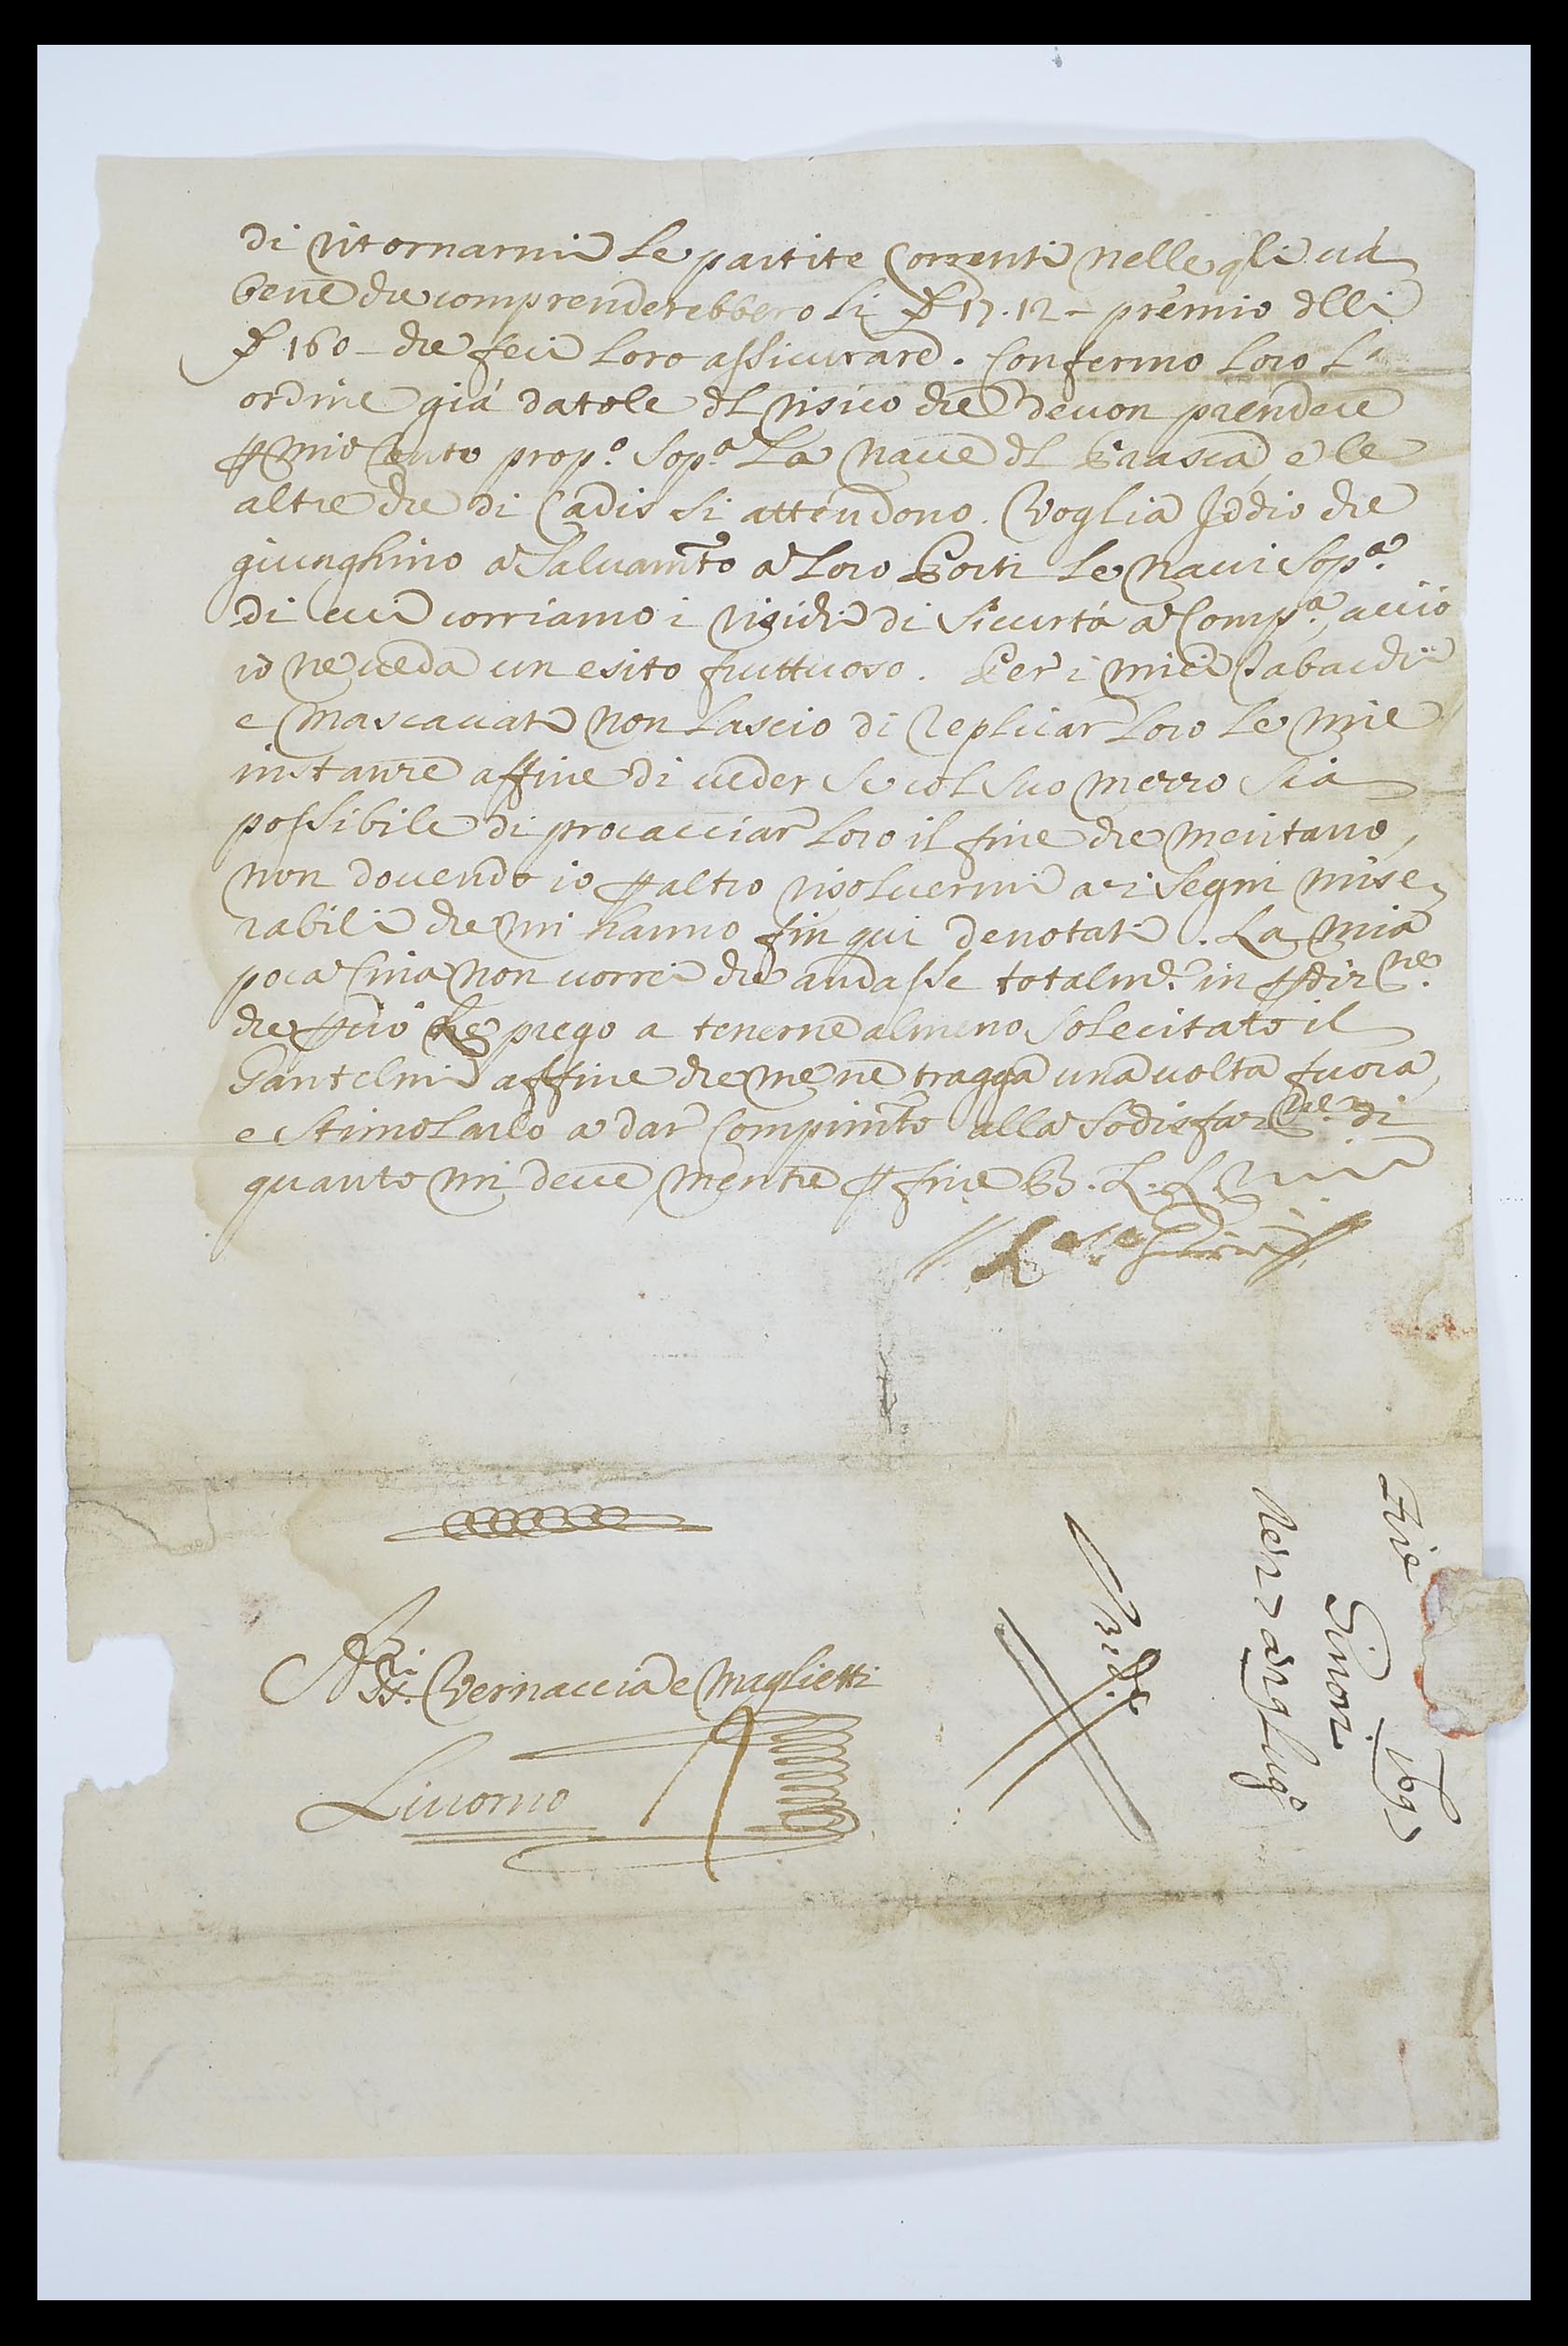 di ritornarmi le partite Correnti nelle qli và
bene che comprenderebbero li 17.12 – premio dlli
160 – che feci loro assicurare. Confermo loro L'
ordine già datole dl risico che devon prendere
mio Conto prop.o Sop.a La nave dl Brasca e le
altre che di Cadis si attendono. Voglia Iddio che
giunghino a Salvam.to a Loro Porti le navi Sop.a
di cui corriamo i risichi di Sicurtà a Comp.a, acciò
io ne veda un esito fruttuoso. Per i miei Tabacchi
e Mascavati non Lascio di replicar Loro le mie
instanze affine di veder se col suo mezzo sia
possibile di procacciar Loro il fine che meritano,
non dovendo io altro risolvermi a i segni mise-
rabili che mi hanno fin qui denotati. La mia
poca Cina non vorrei che andasse totalm.te in
che prego a tenerne almeno solecitato il
Gantelmi affine che me ne tragga una volta fuora,
e stimolarlo a dar Compim.to alla Sodisfaz.ne di
quanto mi deve mentre fine B. L. L.
SS.ri Vernaccia e Maglietti
Livorno
Fire 1697
Sinori
Lug.o